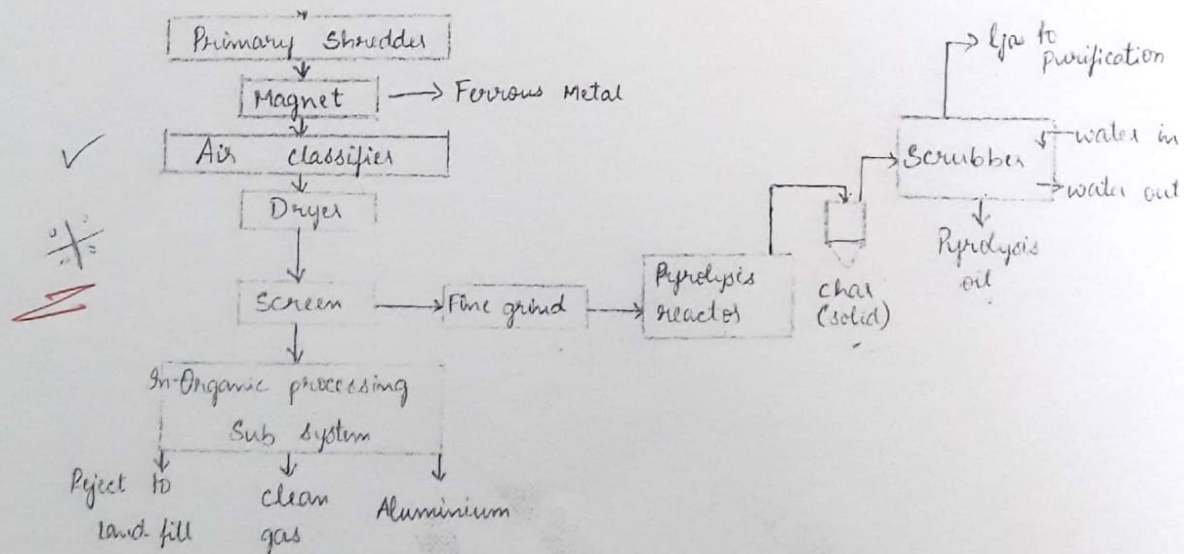 Primary Shredder
Magnet
Ferrous Metal
Air classifier
Dryer
Screen
Fine grind
Pyrolysis
reactor
char
(solid)
Scrubber
to
purification
water in
water out
Pyrolysis
oil
In-Organic processing
Sub system
Reject to
land fill
clean
gas
Aluminium